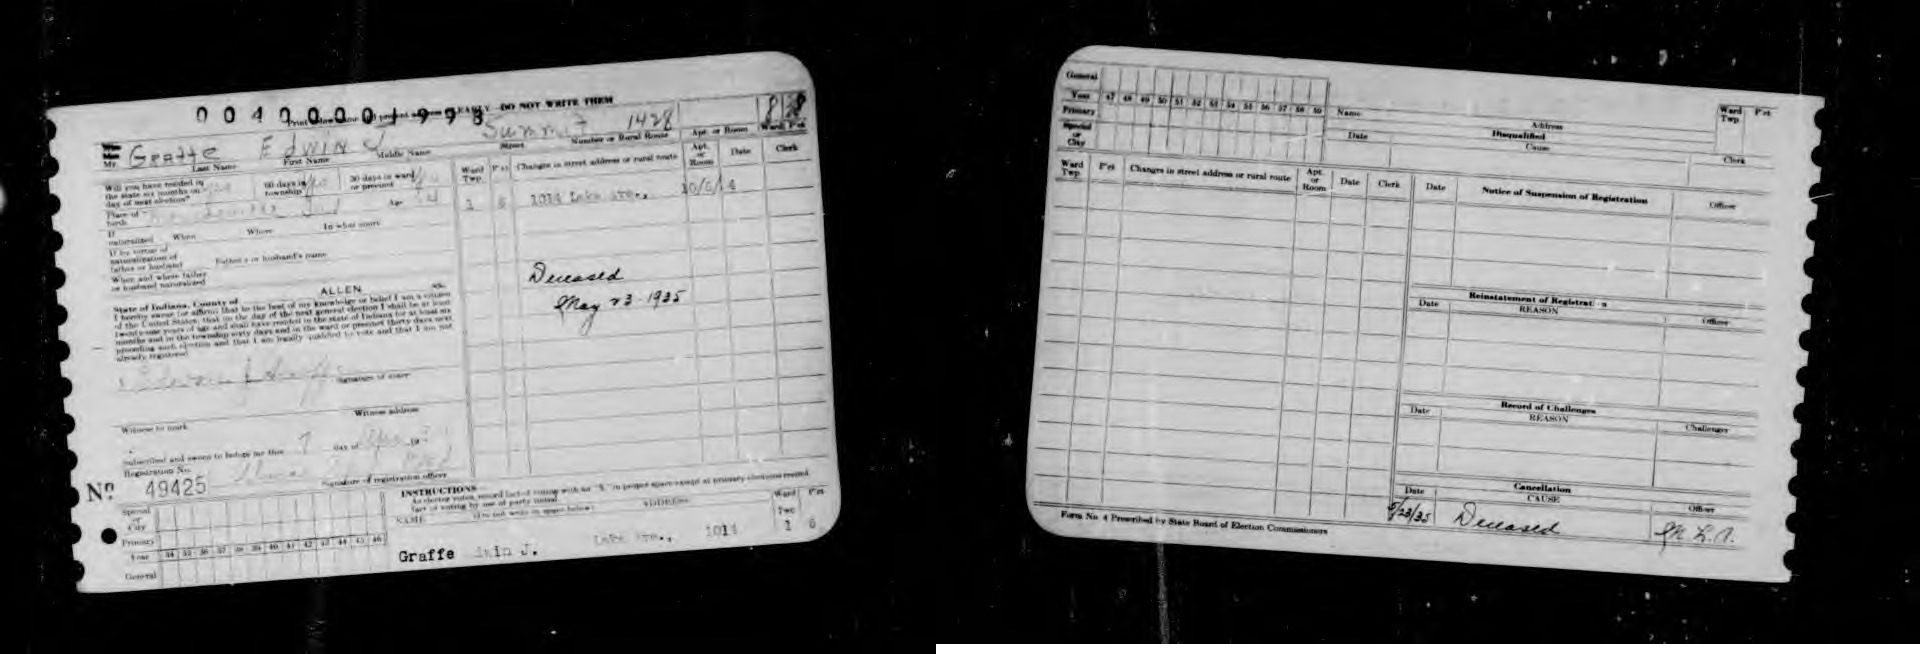 00400001993
DO NOT WRITE THEM
Summit 1428 8 28
Number or Rural Route Apt. or Room Ward P'ct
Street
Mr. Graffe Edwin J
Last Name First Name Middle Name
Will you have resided in the state six months on day of next election? yes 60 days in township? yes 30 days in ward or precinct yes
Place of birth Ind Age
If naturalized When Where In what court
If by virtue of naturalization of father or husband Father's or husband's name
When and where father or husband naturalized
State of Indiana, County of ALLEN ss.
I hereby swear (or affirm) that to the best of my knowledge or belief I am a citizen
of the United States, that on the day of the next general election I shall be at least
twenty-one years of age and shall have resided in the state of Indiana for at least six
months and in the township sixty days and in the ward or precinct thirty days next
preceding such election and that I am legally qualified to vote and that I am not
already registered
Signature of voter
Witness address
Witness to mark
Subscribed and sworn to before me this 7 day of 19
Registration No.
Signature of registration officer
No 49425
Ward Twp. P'ct Changes in street address or rural route Apt. or Room Date Clerk
1 1014 Lake Ave.,
Deceased
May 23-1935
Special or City
Primary
Year 34 35 36 37 38 39 40 41 42 43 44 45 46
General
INSTRUCTIONS
NAME (Do not write in space below) ADDRESS Ward Twp P'ct
Graffe J. Lake Ave., 1014 1 6
General
Year 47 48 49 50 51 52 53 54 55 56 57 58 59
Primary
Special or City
Name Address Ward Twp P'ct
Disqualified
Date Cause Clerk
Ward Twp. P'ct Changes in street address or rural route Apt. or Room Date Clerk
Date Notice of Suspension of Registration Officer
Reinstatement of Registration
Date REASON Officer
Record of Challenges
Date REASON Challenger
Cancellation
Date CAUSE Officer
5/23/35 Deceased
Form No. 4 Prescribed by State Board of Election Commissioners